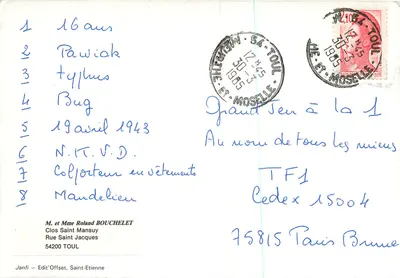 1 16 ans
2 Pawiak
3 typhus
4 Bug
5 19 avril 1943
6 N.K.V.D.
7 Colporteur en vêtements
8 Mandelieu
M. et Mme Roland BOUCHELET
Clos Saint Mansuy
Rue Saint Jacques
54200 TOUL
Janfi – Edit'Offset, Saint-Etienne
54 - TOUL
12 H 45
30 - 3
1985
MOSELLE
54 - TOUL
12 H 45
30 - 3
1985
MOSELLE
Grand Jeu à la 1
Au nom de tous les miens
TF1
Cedex 15004
75815 Paris Brune